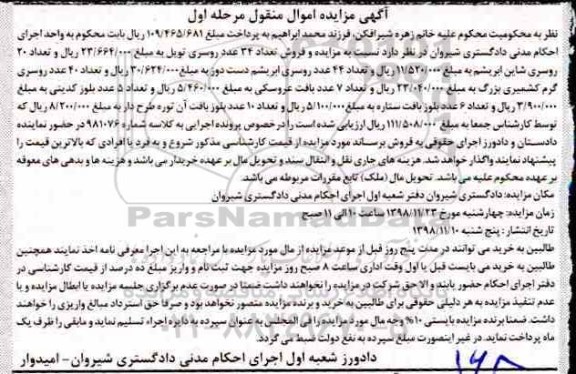 آگهی مزایده اموال منقول مرحله اول
نظر به محکومیت محکوم علیه خانم زهره شیرافکن، فرزند محمد ابراهیم به پرداخت مبلغ ۱۰۹/۴۶۵/۶۸۱ ریال بابت محکوم به واحد اجرای
احکام مدنی دادگستری شیروان در نظر دارد نسبت به مزایده و فروش تعداد ۳۴ عدد روسری تویل به مبلغ ۲۳/۶۶۴/۰۰۰ ریال و تعداد ۲۰
روسری شاین ابریشم به مبلغ ۱۱/۵۲۰/۰۰۰ ریال و تعداد ۴۴ عدد روسری ابریشم دست دوز به مبلغ ۳۰/۶۲۴/۰۰۰ ریال و تعداد ۴۰ عدد روسری
گرم کشمیری بزرگ به مبلغ ۲۳/۰۴۰/۰۰۰ ریال و تعداد ۷ عدد بافت عروسکی به مبلغ ۵/۴۶۰/۰۰۰ ریال و تعداد ۵ عدد بلوز کدینی به مبلغ
۳/۹۰۰/۰۰۰ ریال و تعداد ۶ عدد بلوز بافت ستاره به مبلغ ۵/۱۰۰/۰۰۰ ریال و تعداد ۱۰ عدد بلوز بافت آن توره طرح دار به مبلغ ۸/۲۰۰/۰۰۰ ریال که
توسط کارشناس جمعا به مبلغ ۱۱۱/۵۰۸/۰۰۰ ریال ارزیابی شده است را در خصوص پرونده اجرایی به کلاسه شماره ۹۸۱۰۷۶ در حضور نماینده
دادستان و دادورز اجرای حقوقی به فروش برساند مورد مزایده از قیمت کارشناسی مذکور شروع و به فرد یا افرادی که بالاترین قیمت را
پیشنهاد نمایند واگذار خواهد شد. هزینه های جاری نقل و انتقال سند و تحویل مال بر عهده خریدار می باشد و هزینه ها و بدهی های معوقه
بر عهده محکوم علیه می باشد. تحویل مال (ملک) تابع مقررات مربوطه می باشد.
مکان مزایده: دادگستری شیروان دفتر شعبه اول اجرای احکام مدنی دادگستری شیروان
زمان مزایده: چهارشنبه مورخ ۱۳۹۸/۱۱/۲۳ ساعت ۱۰ الی ۱۱ صبح
تاریخ انتشار: پنج شنبه ۱۳۹۸/۱۱/۱۰
طالبین به خرید می توانند در مدت پنج روز قبل از موعد مزایده از مال مورد مزایده با مراجعه به این اجرا معرفی نامه اخذ نمایند همچنین
طالبین به خرید می بایست قبل یا اول وقت اداری ساعت ۸ صبح روز مزایده جهت ثبت نام و واریز مبلغ ده درصد از قیمت کارشناسی در
دفتر اجرای احکام حضور یابند و الا حق شرکت در مزایده را نخواهند داشت ضمنا در صورت عدم برگزاری جلسه مزایده یا ابطال مزایده و یا
عدم تنفیذ مزایده به هر دلیلی حقوقی برای طالبین به خرید و برنده مزایده متصور نخواهد بود و صرفا حق استرداد مبالغ واریزی را خواهند
داشت. ضمنا برنده مزایده بایستی ۱۰% وجه مال مورد مزایده را فی المجلس به عنوان سپرده به دایره اجراء تسلیم نماید و مابقی را ظرف یک
ماه پرداخت نماید. در غیر اینصورت مبلغ سپرده به نفع دولت ضبط می گردد.
دادورز شعبه اول اجرای احکام مدنی دادگستری شیروان- امیدوار
ParsNamadData